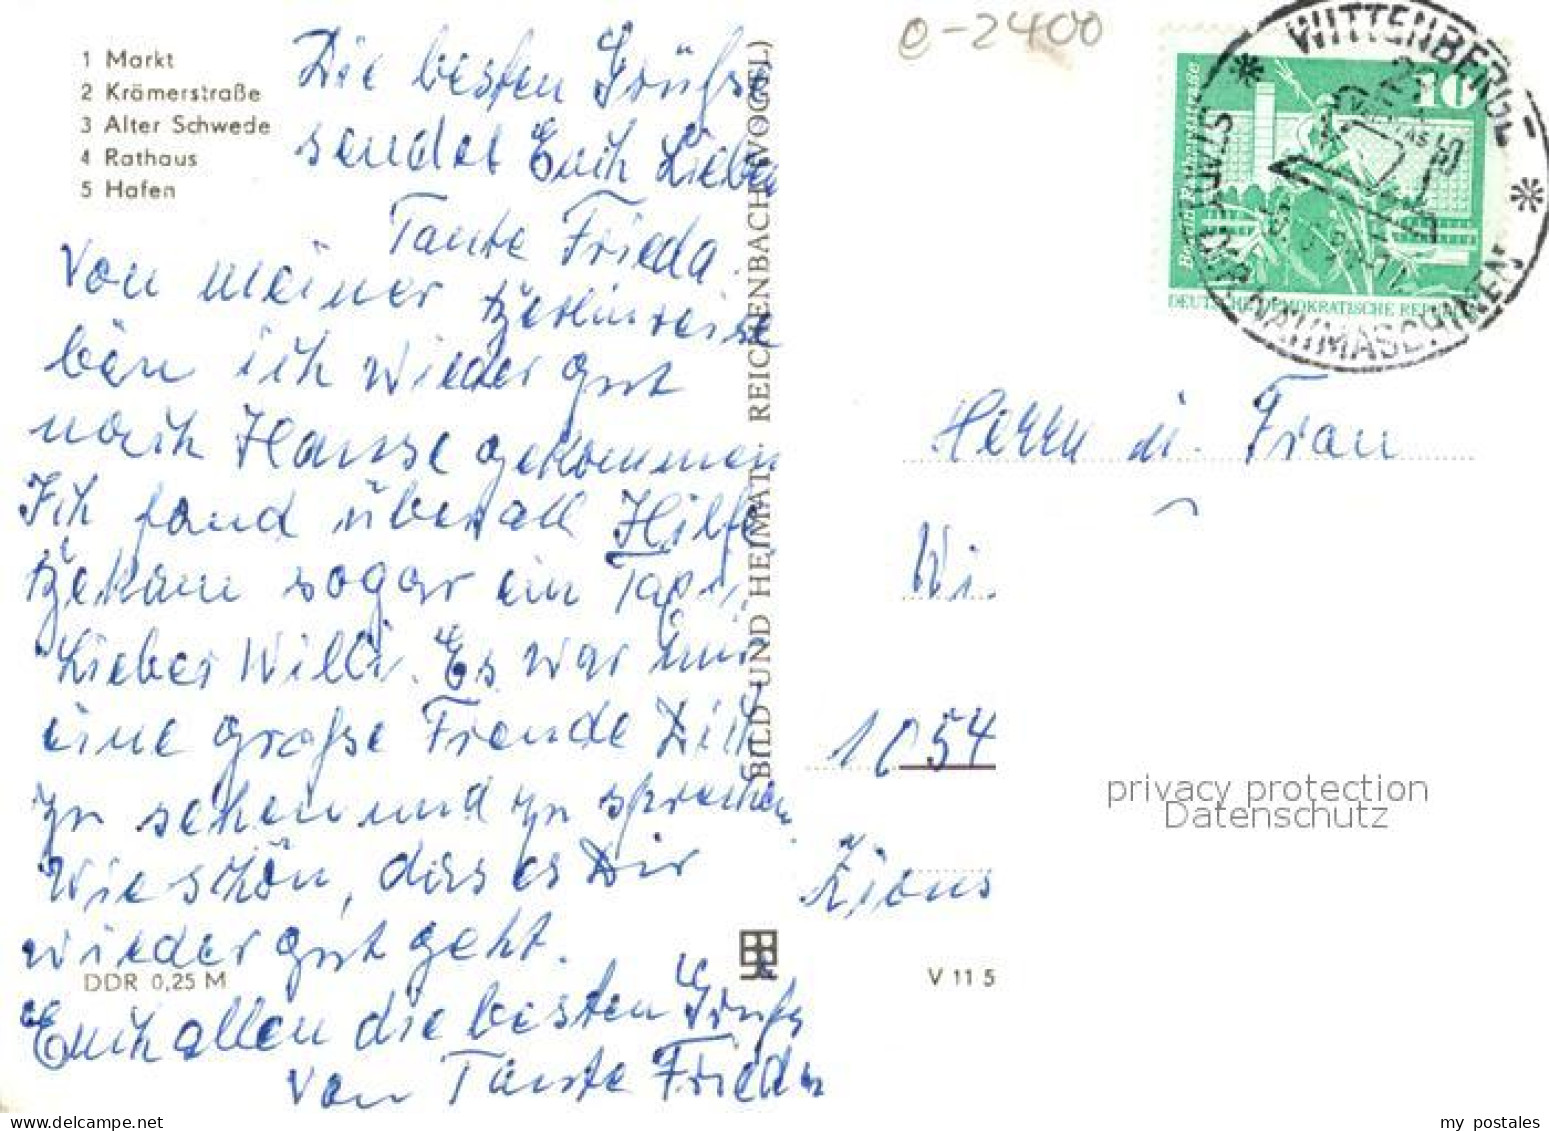 1 Markt
2 Krämerstraße
3 Alter Schwede
4 Rathaus
5 Hafen
Die besten Grüße
sendet Euch Liebe
Tante Frieda.
Von meiner Berlinreise
bin ich wieder gut
nach Hause gekommen
Ich fand überall Hilfe
Bekam sogar ein
Lieber Willi. Es war mir
eine große Freude Dich
zu sehen und zu sprechen.
Wie schön, dass es Dir
wieder gut geht.
Euch allen die besten Grüße
von Tante Frieda
DDR 0,25 M
BILD UND HEIMAT REICHENBACH (VOGTL)
V 11 5
e-2400
WITTENBERGE
STADT D. NÄHMASCHINEN
VERITAS
10
DEUTSCHE DEMOKRATISCHE REPUBLIK
Herrn u. Frau
Wi.
1054
Zions
privacy protection
Datenschutz
my postales